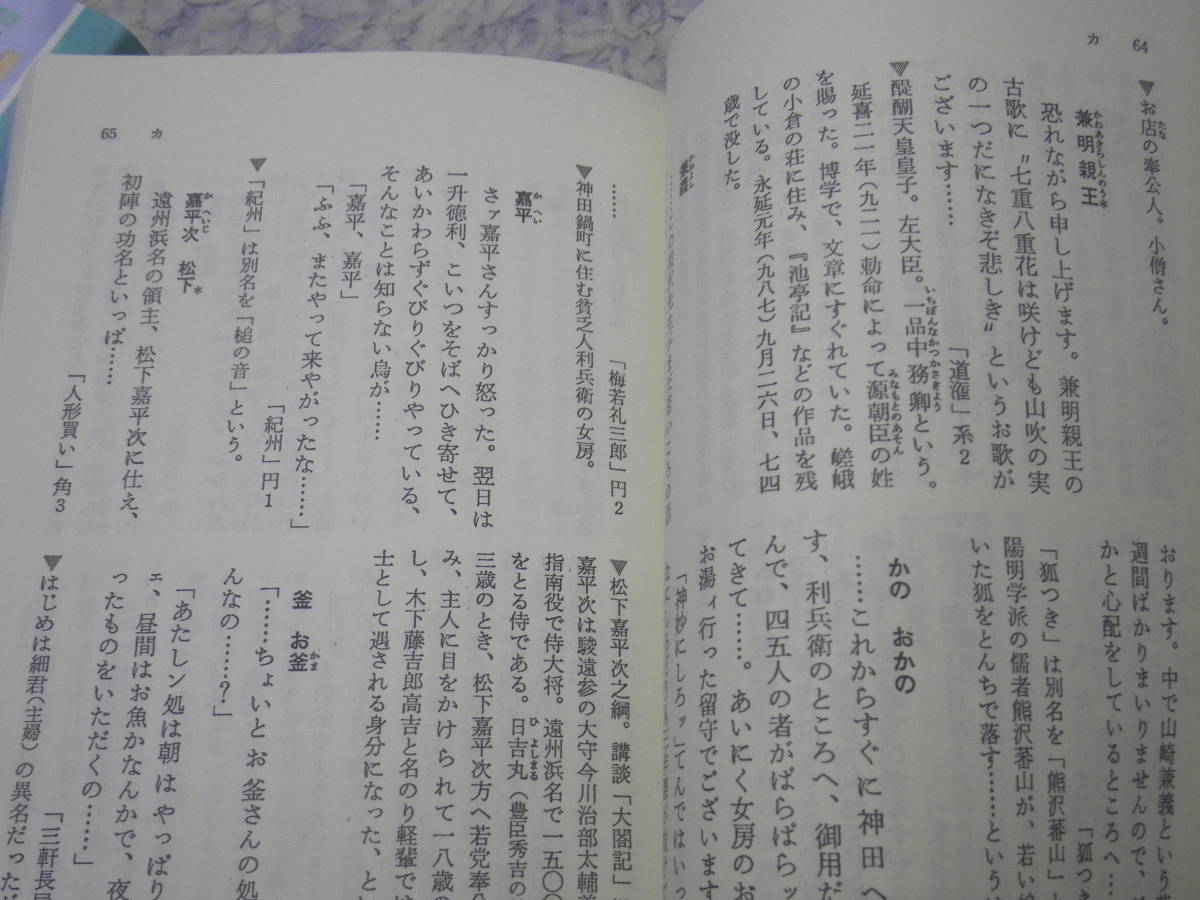 64
カ
▼お店の奉公人。小僧さん。
たな
兼明親王*
かねあきらしんのう
恐れながら申し上げます。兼明親王の
古歌に〝七重八重花は咲けども山吹の実
の一つだになきぞ悲しき〟というお歌が
ございます……
「道潅」系2
▼醍醐天皇皇子。左大臣。一品中務卿という。
いちぽんなかつかさきょう
延喜二一年(九二一)勅命によって源朝臣の姓
みなもとのあそん
を賜った。博学で、文章にすぐれていた。嵯峨
の小倉の荘に住み、『池亭記』などの作品を残
している。永延元年(九八七)九月二六日、七四
歳で没した。
おります。中で山崎兼義という
週間ばかりまいりませんので、
かと心配をしているところへ…
「狐つき
「狐つき」は別名を「熊沢蕃山」と
陽明学派の儒者熊沢蕃山が、若い
いた狐をとんちで落す……という
かの おかの
……これからすぐに神田へ
す、利兵衛のところへ、御用だ
んで、四五人の者がばらばらッ
てきて……。あいにく女房のお
お湯ィ行った留守でございます
「神妙にしろッ」てんではいっ
65
カ
……
「梅若礼三郎」円2
▼神田鍋町に住む貧乏人利兵衛の女房。
嘉平
かへい
さァ嘉平さんすっかり怒った。翌日は
一升徳利、こいつをそばへひき寄せて、
あいかわらずぐびりぐびりやっている、
そんなことは知らない烏が……
「嘉平、嘉平」
「ふふ、またやって来やがったな……」
「紀州」円1
▼「紀州」は別名を「槌の音」という。
嘉平次 松下*
かへいじ
遠州浜名の領主、松下嘉平次に仕え、
初陣の功名といっぱ……
「人形買い」角3
▼松下嘉平次之綱。講談「太閤記」
嘉平次は駿遠参の大守今川治部太輔義
指南役で侍大将。遠州浜名で一五〇〇
をとる侍である。日吉丸(豊臣秀吉の
ひよしまる
三歳のとき、松下嘉平次方へ若党奉公
み、主人に目をかけられて一八歳の
し、木下藤吉郎高吉と名のり軽輩で
士として遇される身分になった、と
釜 お釜
かま
「……ちょいとお釜さんの処
んなの……?」
「あたしン処は朝はやっぱり
ェ、昼間はお魚かなんかで、夜
ったものをいただくの……」
「三軒長屋
▼はじめは細君(主婦)の異名だった